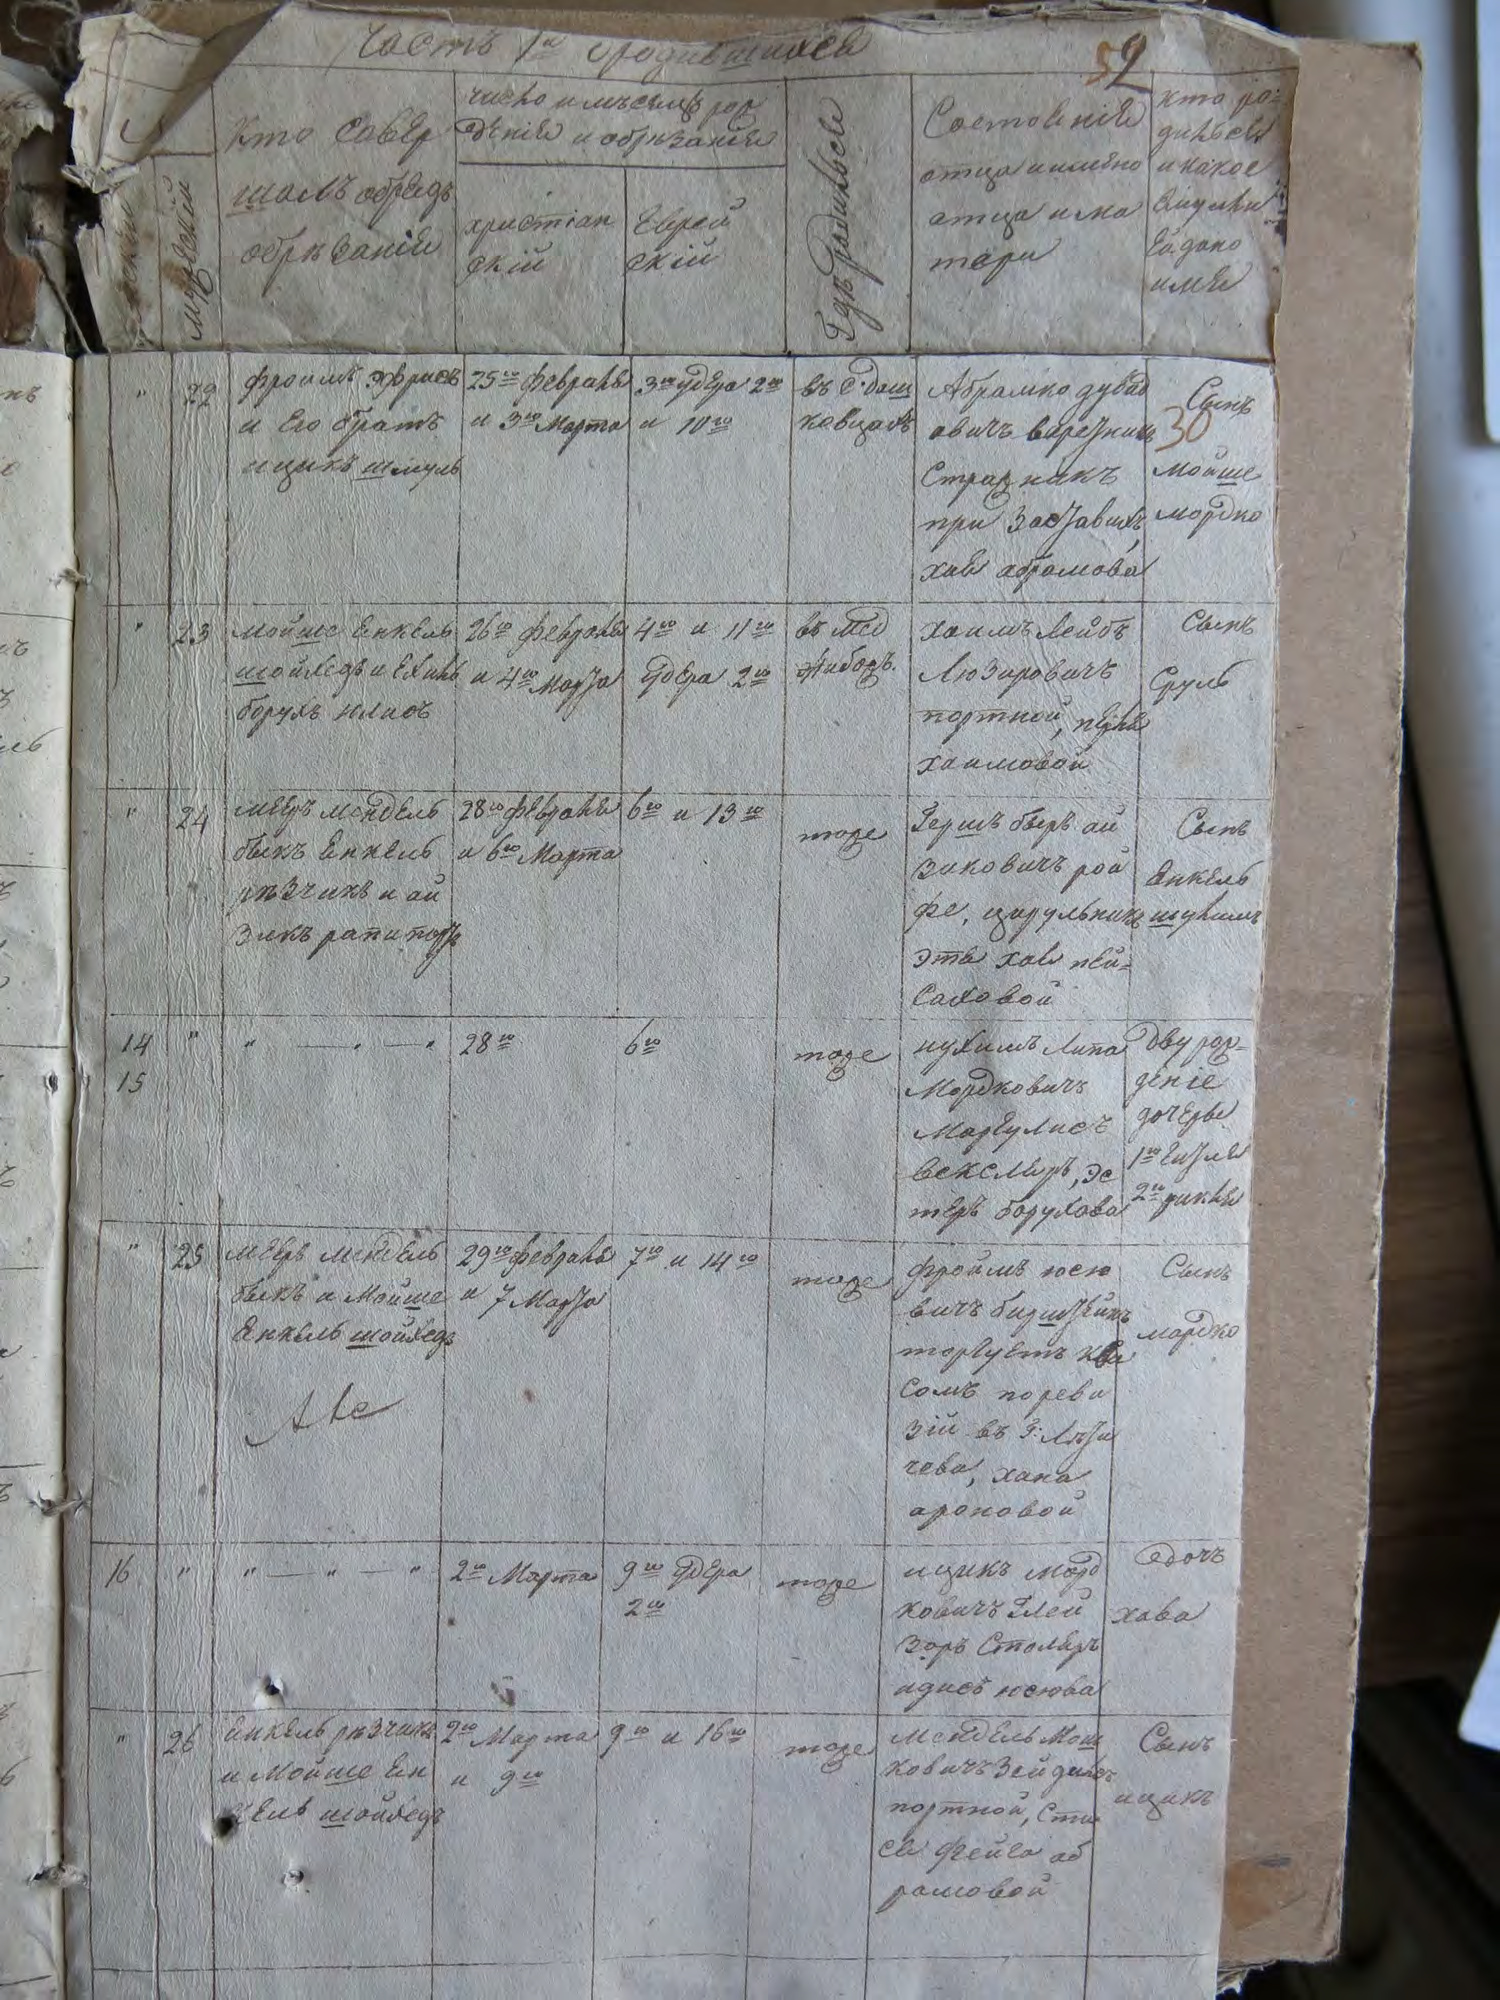 Часть 1я о родившихся
52
женскій
мужескій
Кто совер
шалъ обрядъ
обрѣзанія
число и мѣсяцъ рож
денія и обрѣзанія
христіан
скій
Еврей
скій
Гдѣ родился
Состояніе
отца и имена
отца и ма
тери
Кто ро=
дился
и какое
ему или
ей дано
имя
" 22
фроимъ
и Его братъ
ицикъ шмуль
25го февраля
и 3го Марта
3го удера 2го
и 10го
въ с. Даш
ковцахъ
Абрамко
овичъ
Стражникъ
при Заставахъ,
хая абрамова
Сынъ
30
мойше
мордко
" 23
мойше Енкель
шойхедъ и Ехиль
борухъ
26го февраля
и 4го Марта
4го и 11го
удера 2го
въ Мед
жибожъ.
хаимъ лейбъ
Люзировичъ
портной, перля
хаимовой
Сынъ
Сруль
" 24
мееръ мендель
быкъ Енкель
рѣзчикъ и ай
зикъ рапипортъ
28го февраля
и 6го Марта
6го и 13го
тоже
Гершъ беръ ай
зиковичъ рой
фе, цирульникъ
эта хая пей=
саховой
Сынъ
Енкель
шулимъ
14 " " — " — "
15
28го
6го
тоже
нухимъ липа
Мордковичъ
Маргулисъ
векслеръ, эс
теръ борухова
Двурож=
деніе
дочеры
1я
2я рикля
" 25
мееръ мендель
быкъ и Мойше
Енкель шойхедъ
29го февраля
и 7 Марта
7го и 14го
тоже
фроимъ юсю
вичъ
торгуетъ ква
сомъ по реви
зіи въ г: Лети
чева, хана
ароновой
Сынъ
мордко
16 " " — " — "
2го Марта
9го удера
2го
тоже
ицикъ морд
ковичъ Глей
зоръ Столяръ
идись юсюва
дочъ
хава
" 26
Енкель рѣзчикъ
и Мойше Ен
кель шойхедъ
2го Марта
и 9го
9го и 16го
тоже
мендель Мош
ковичъ Зейдисъ
портной,
фейга аб
рамовой
Сынъ
ицикъ